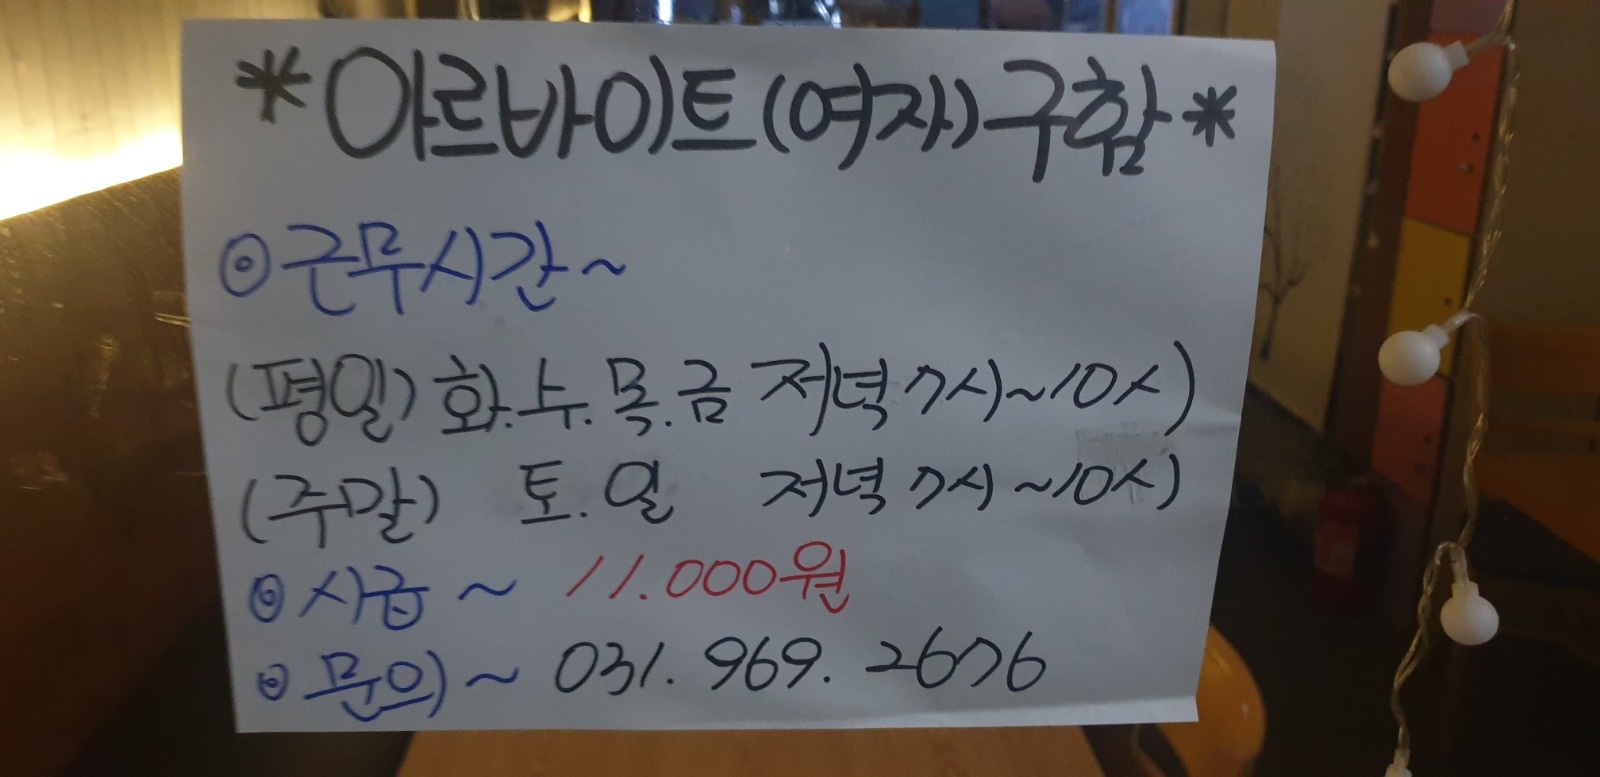 *아르바이트(여자)구함*
⊙근무시간~
(평일)화.수.목.금 저녁7시~10시)
(주말) 토.일 저녁7시~10시)
⊙시급~ 11.000원
⊙문의~ 031.969.2676